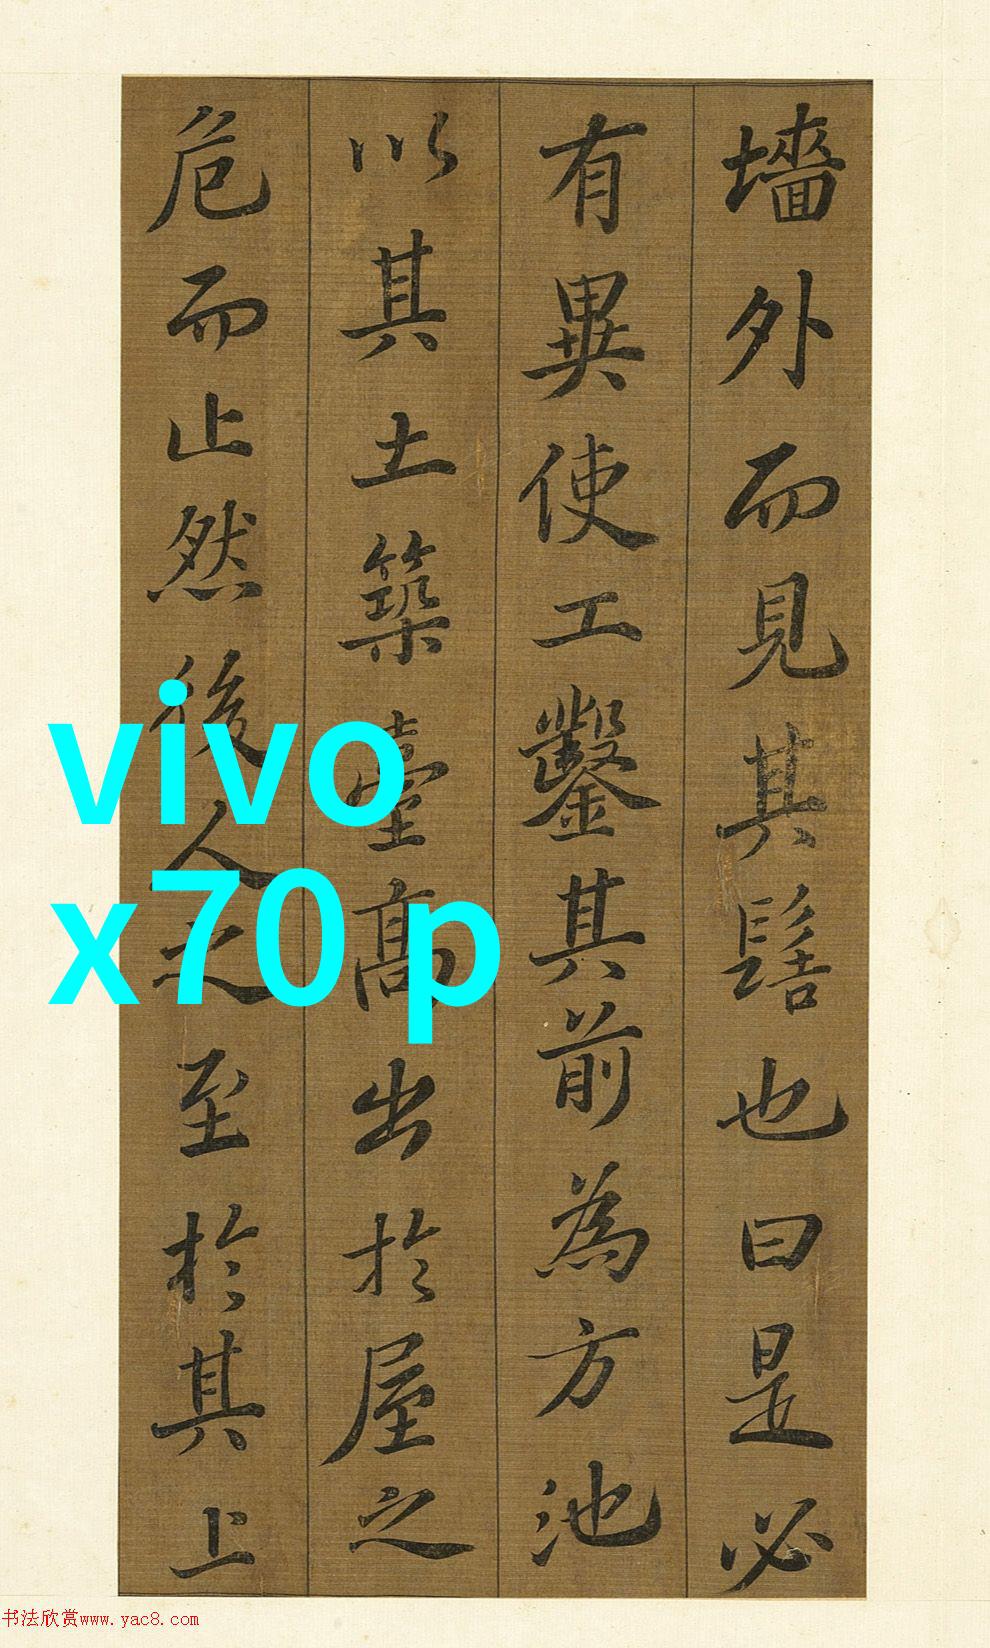 墻外而見其髻也曰是必
有異使工鑿其前為方池
以其土築臺高出於屋之
危而止然後人之至於其上
vivo
x70 p
书法欣赏www.yac8.com